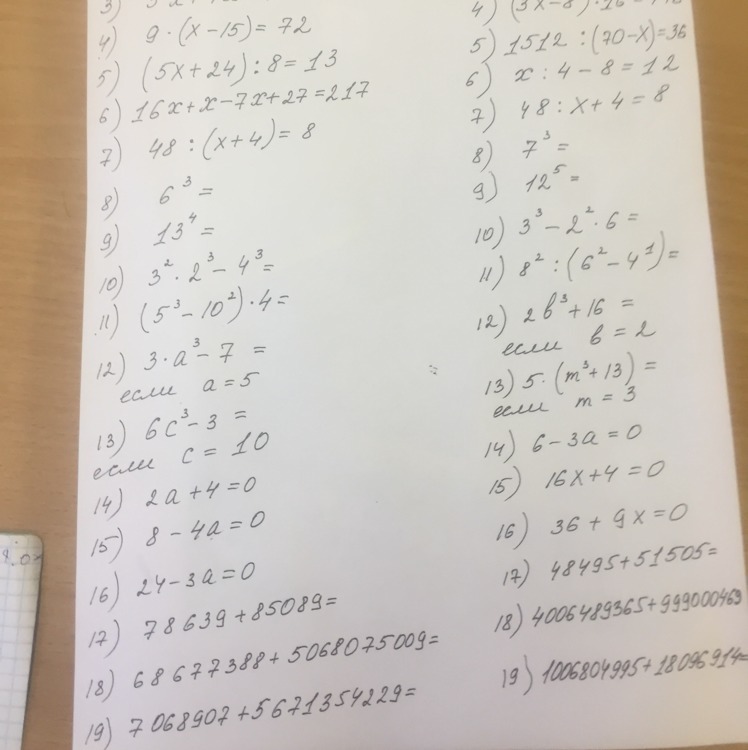 4) 9·(x-15)=72
5) (5x+24):8=13
6) 16x+x-7x+27=217
7) 48:(x+4)=8
8) 6³=
9) 13⁴=
10) 3²·2³-4³=
11) (5³-10²)·4=
12) 3·a³-7=
если a=5
13) 6c³-3=
если c=10
14) 2a+4=0
15) 8-4a=0
16) 24-3a=0
17) 78639+85089=
18) 68677388+5068075009=
19) 7068907+5671354229=
5) 1512:(70-x)=36
6) x:4-8=12
7) 48:x+4=8
8) 7³=
9) 12⁵=
10) 3³-2²·6=
11) 8²:(6²-4¹)=
12) 2b³+16=
если b=2
13) 5·(m³+13)=
если m=3
14) 6-3a=0
15) 16x+4=0
16) 36+9x=0
17) 48495+51505=
18) 4006489365+999000463
19) 1006804995+18096914=